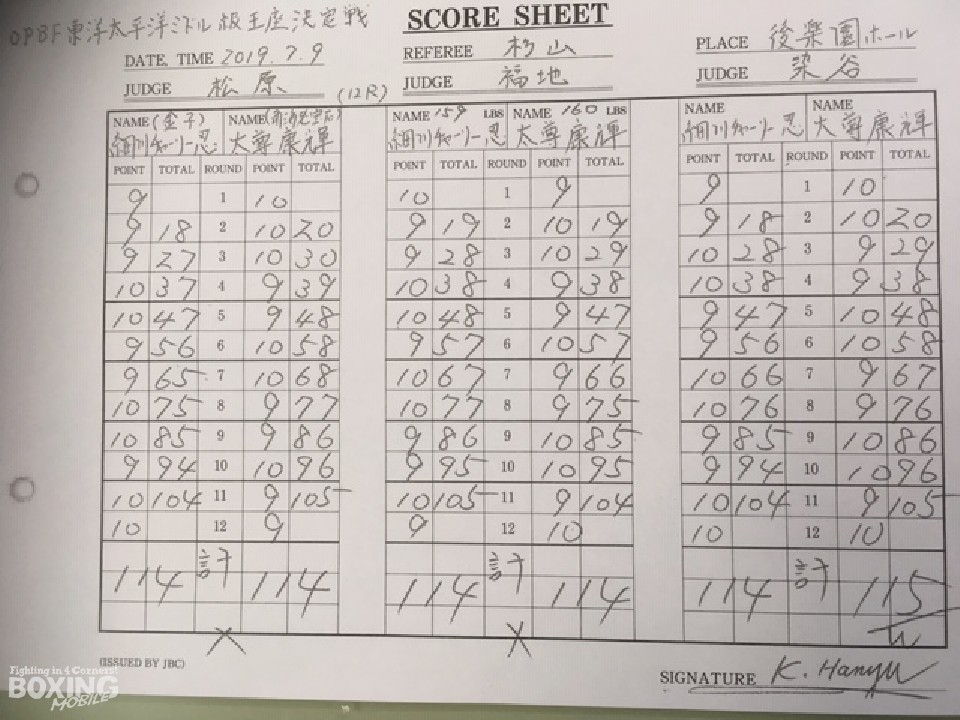 SCORE SHEET
OPBF東洋太平洋ミドル級王座決定戦
DATE, TIME 2019.7.9 REFEREE 杉山 PLACE 後楽園ホール
JUDGE 松原 (12R) JUDGE 福地 JUDGE 染谷
NAME (金子) NAME NAME 159 LBS NAME 160 LBS NAME NAME
細川チャーリー忍 太尊康輝 細川チャーリー忍 太尊康輝 細川チャーリー忍 太尊康輝
POINT TOTAL ROUND POINT TOTAL POINT TOTAL ROUND POINT TOTAL POINT TOTAL ROUND POINT TOTAL
9 1 10 10 1 9 9 1 10
9 18 2 10 20 9 19 2 10 19 9 18 2 10 20
9 27 3 10 30 9 28 3 10 29 10 28 3 9 29
10 37 4 9 39 10 38 4 9 38 10 38 4 9 38
10 47 5 9 48 10 48 5 9 47 9 47 5 10 48
9 56 6 10 58 9 57 6 10 57 9 56 6 10 58
9 65 7 10 68 10 67 7 9 66 10 66 7 9 67
10 75 8 9 77 10 77 8 9 75 10 76 8 9 76
10 85 9 9 86 9 86 9 10 85 9 85 9 10 86
9 94 10 10 96 9 95 10 10 95 9 94 10 10 96
10 104 11 9 105 10 105 11 9 104 10 104 11 9 105
10 12 9 9 12 10 10 12 10
114 計 114 114 計 114 114 計 115
X X W
(ISSUED BY JBC)
SIGNATURE K. Hanyu
Fighting in 4 Corners!
BOXING
MOBILE